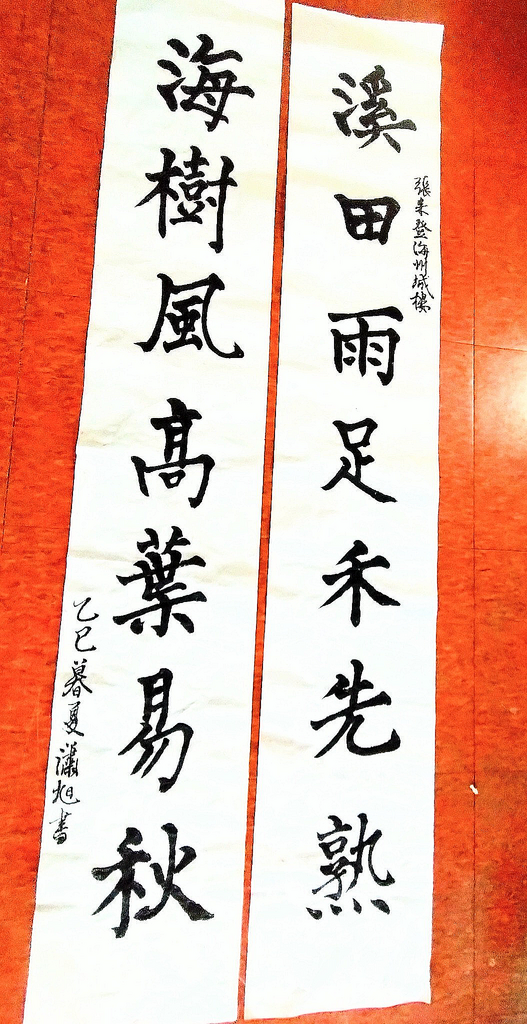 溪田雨足禾先熟
張耒登海州城樓
海樹風高葉易秋
乙巳暮夏瀟旭書